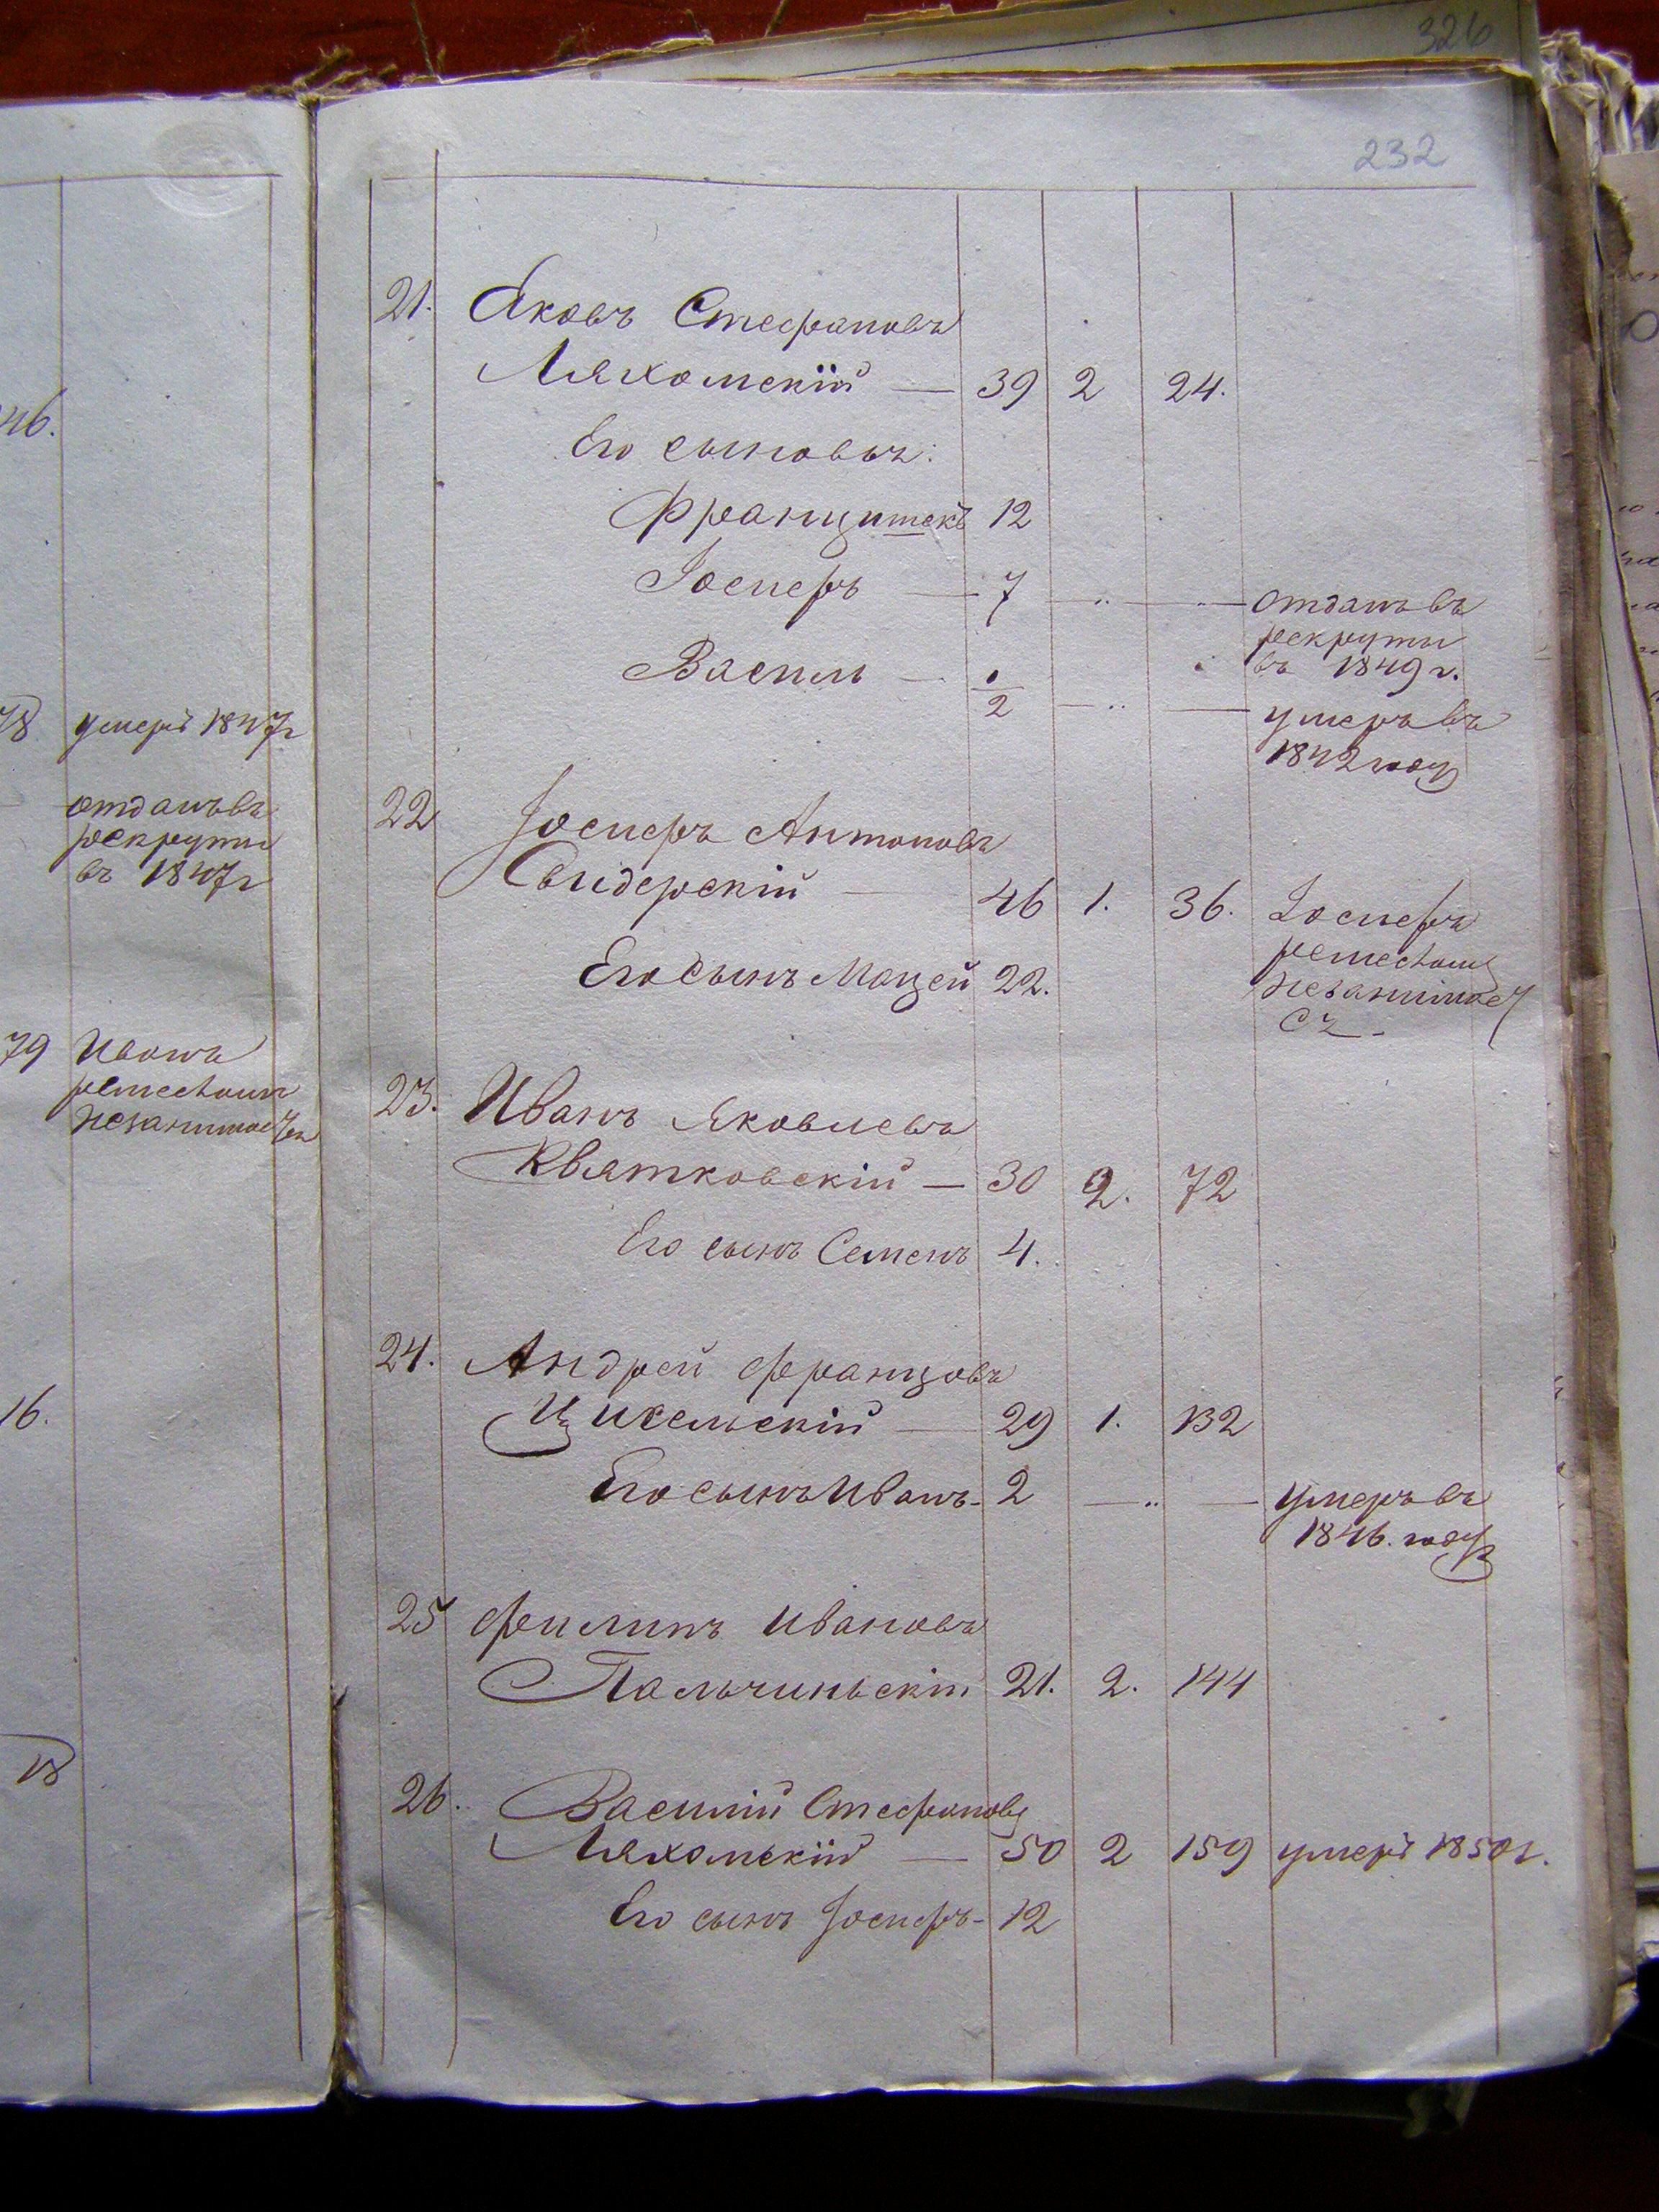 326
232
46.
78 умеръ 1847г
отданъ въ
рекруты
въ 1847г
79 Иванъ
ремесломъ
незанимается
16.
18
21. Яковъ Стефановъ
Ляхомскій — 39 2 24.
Его сыновья:
Францишекъ 12
Іосифъ — 7 — " — " — отданъ въ
рекруты
въ 1849 г.
Василь — 2 — " — умеръ въ
1842 году
22 Іосифъ Антоновъ
Свидерскій — 46 1. 36. Іосифъ
ремесломъ
незанимает
ся -
Его сынъ Мацей 22.
23. Иванъ Яковлевъ
Квятковскій — 30 2. 72
Его сынъ Семенъ 4.
24. Андрей Францовъ
Цихельскій — 29 1. 132
Его сынъ Иванъ - 2 — " — умеръ въ
1846. году
25 Филипъ Ивановъ
Пальчиньскій 21. 2. 144
26. Василій Стефановъ
Ляхомскій — 50 2 159 умеръ 1850г.
Его сынъ Іосифъ - 12